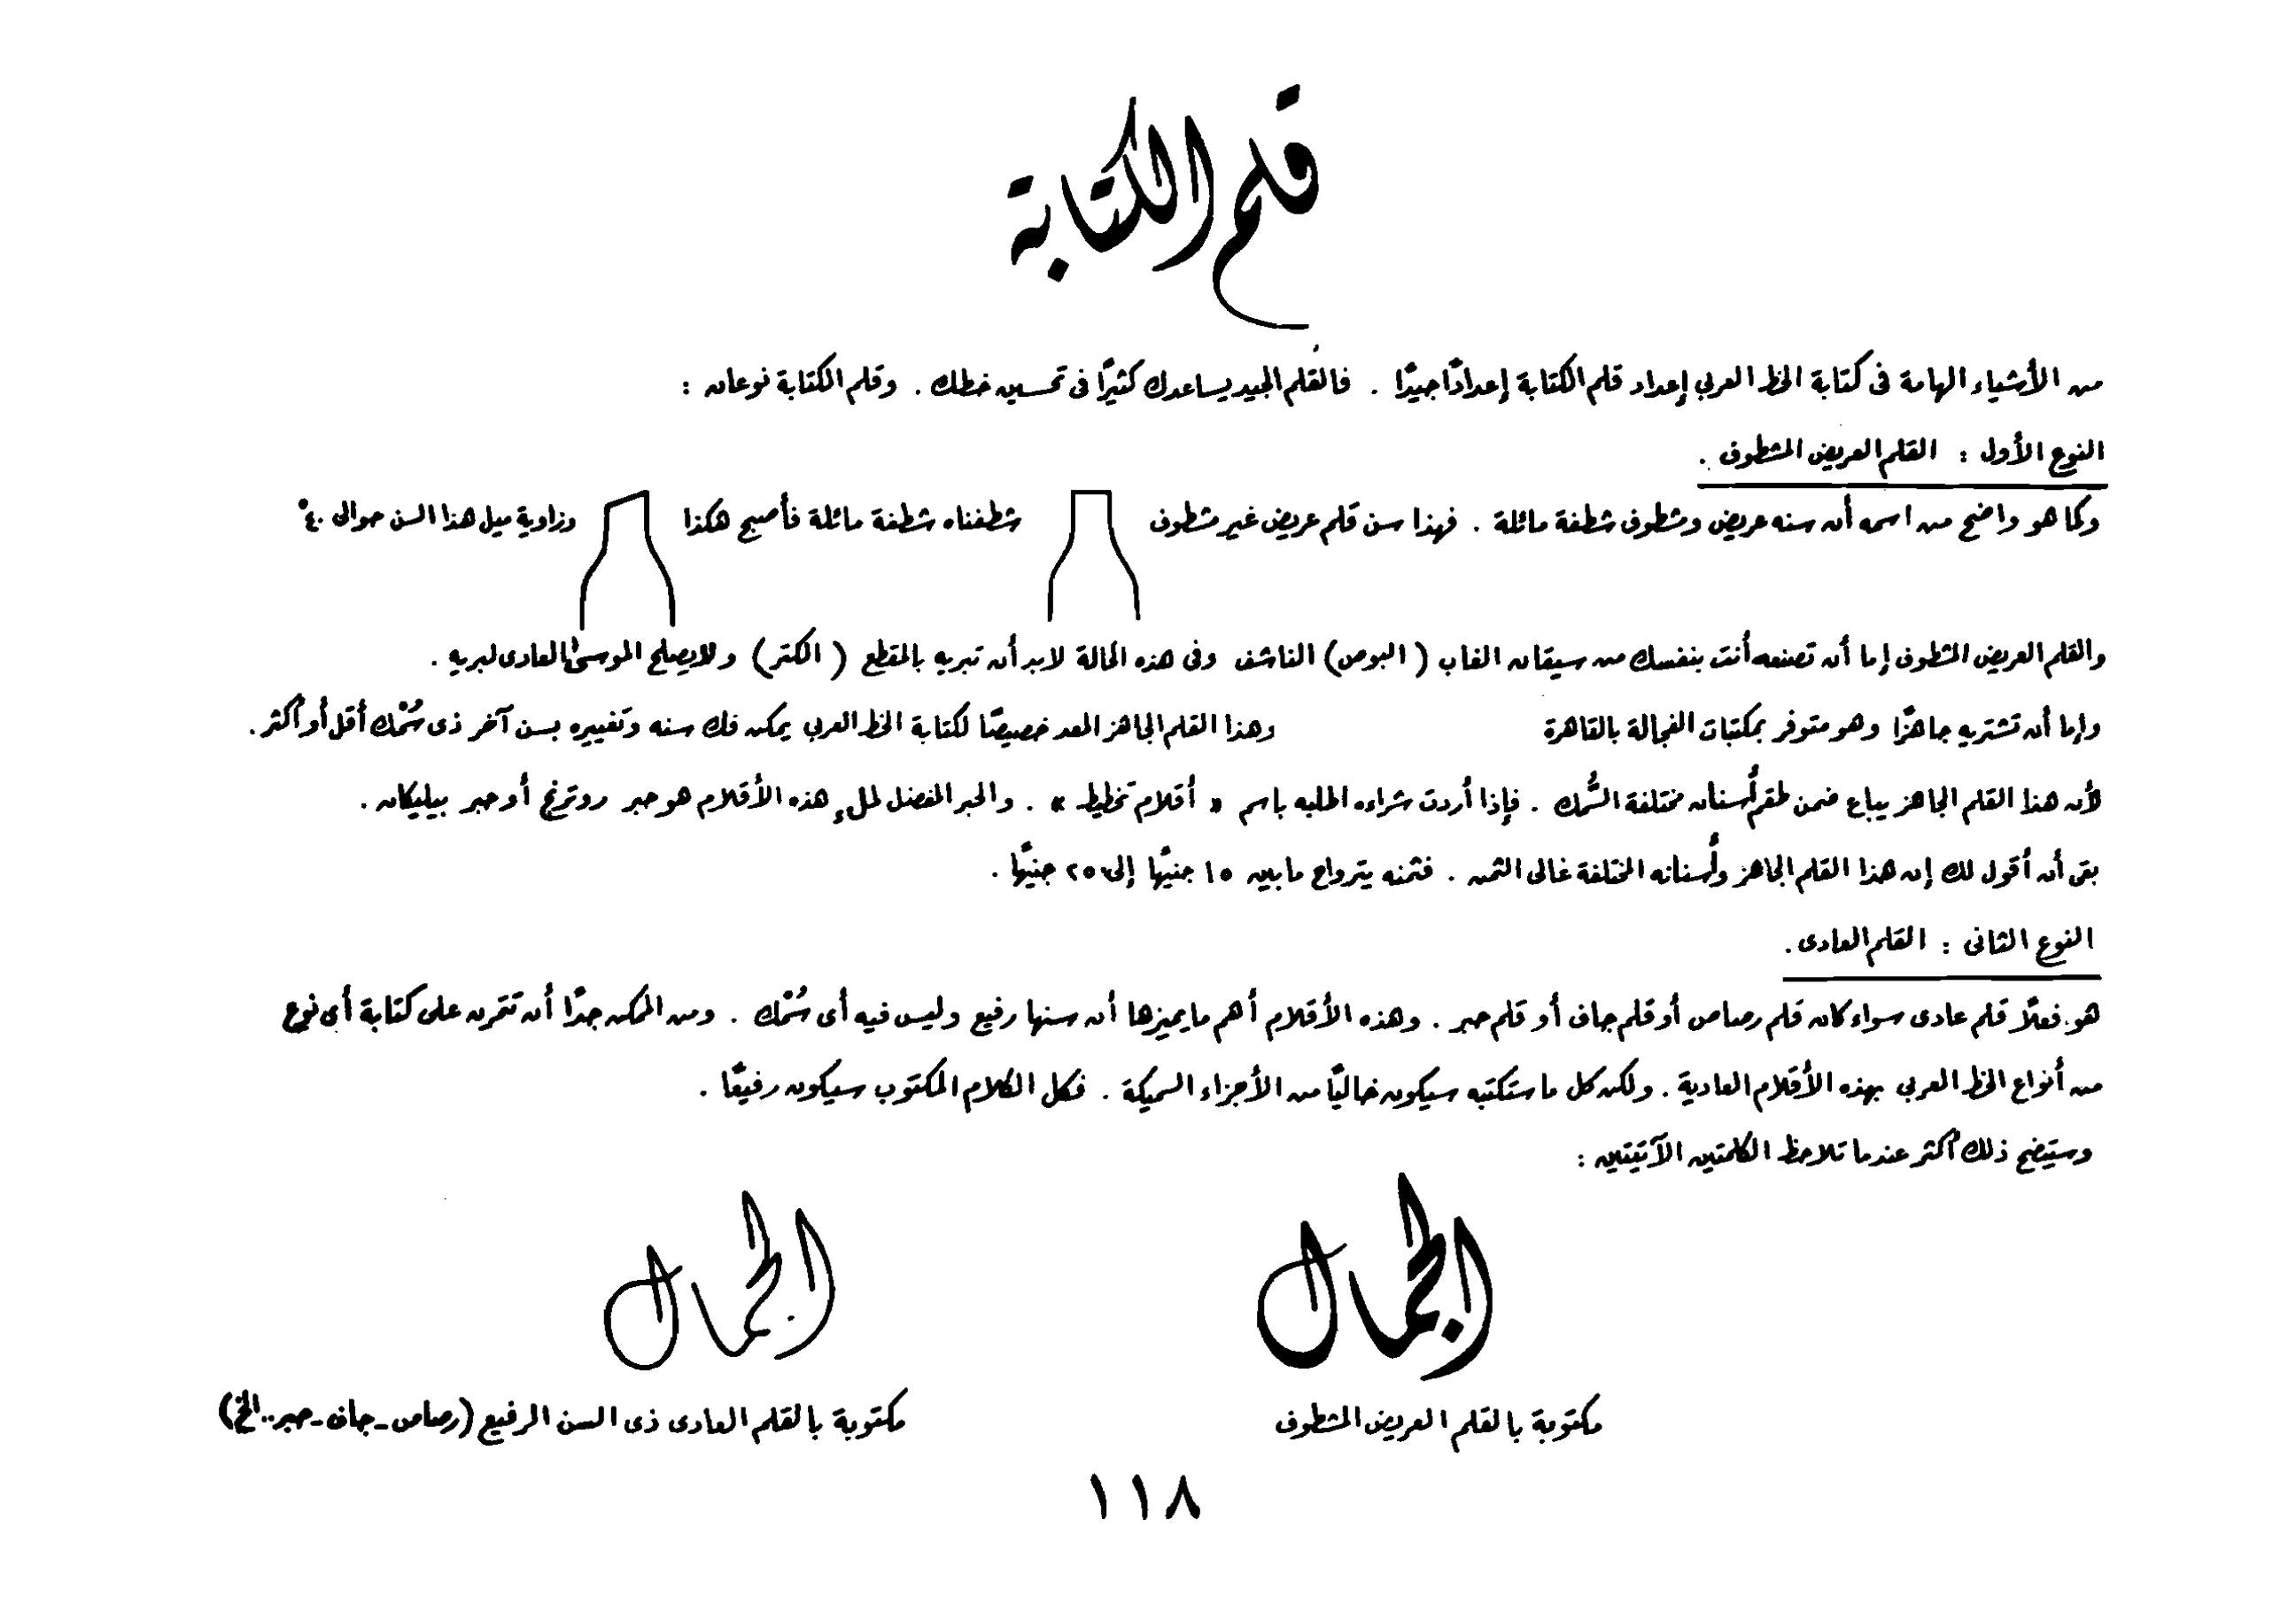 قلم الكتابة
من الأشياء الهامة فى كتابة الخط العربي إعداد قلم الكتابة إعدادًا جيدًا . فالقلم الجيد يساعدك كثيرًا فى تحسين خطك . وقلم الكتابة نوعان :
النوع الأول : القلم العريض المشطوف .
وكما هو واضح من اسمه أن سنه عريض ومشطوف شطفة مائلة . فهذا سن قلم عريض غير مشطوف شطفناه شطفة مائلة فأصبح هكذا وزاوية ميل هذا السن حوالى ٤٠°
والقلم العريض المشطوف إما أن تصنعه أنت بنفسك من سيقان الغاب ( البوص ) الناشف وفى هذه الحالة لابد أن تبريه بالمقطع ( الكتر ) ولا يصلح الموسى العادى لبريه .
وإما أن تشتريه جاهزًا وهو متوفر بمكتبات الفجالة بالقاهرة وهذا القلم الجاهز المعد خصيصًا لكتابة الخط العربي يمكن فك سنه وتغييره بسن آخر ذى سُمْك أقل أو أكثر .
لأن هذا القلم الجاهز يباع ضمن طقم أسنان مختلفة السُّمك . فإذا أردت شراءه اطلبه باسم « أقلام تخطيط » . والحبر المفضل لملء هذه الأقلام هو حبر روترنج أو حبر بيليكان .
بقى أن أقول لك إن هذا القلم الجاهز وأسنانه المختلفة غالى الثمن . فثمنه يترواح ما بين ١٥ جنيهًا إلى ٢٥ جنيهًا .
النوع الثانى : القلم العادى .
هو فعلًا قلم عادى سواء كان قلم رصاص أو قلم جاف أو قلم حبر . وهذه الأقلام أهم ما يميزها أن سنها رفيع وليس فيه أى سُمْك . ومن الممكن جدًا أن تتمرن على كتابة أى نوع
من أنواع الخط العربي بهذه الأقلام العادية . ولكن كل ما ستكتبه سيكون خاليًا من الأجزاء السميكة . فكل الكلام المكتوب سيكون رفيعًا .
وسيتضح ذلك أكثر عندما تلاحظ الكلمتين الآتيتين :
الجمال الجمال
مكتوبة بالقلم العريض المشطوف مكتوبة بالقلم العادى ذى السن الرفيع (رصاص - جاف - حبر .. الخ)
١١٨